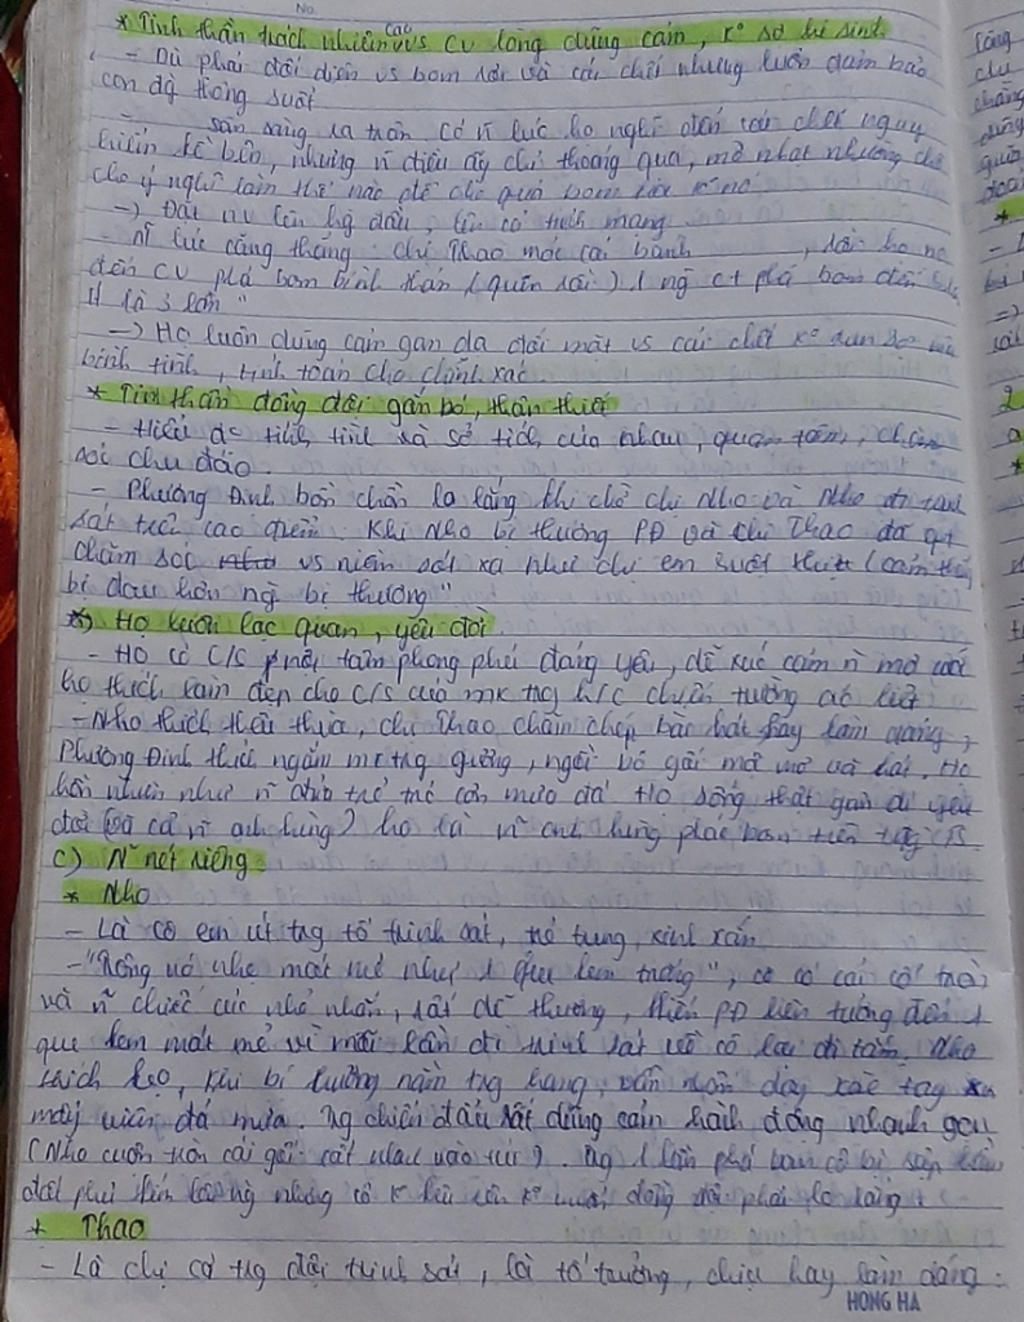 No.
* Tinh thần trách nhiệm cao vs CV lòng dũng cảm, ko sợ hi sinh
- Dù phải đối diện vs bom rơi và cái chết nhưng luôn đảm bảo
con đg thông suốt
- sẵn sàng ra trận. Có n~ lúc họ nghĩ đến cái chết nguy
hiểm kề bên, nhưng n~ điều ấy chỉ thoáng qua, mờ nhạt nhường chỗ
cho ý nghĩ làm thế nào để cho quả bom nổ
-> Đặt nv lên hg đầu, lên cả tính mạng
- n~ lúc căng thẳng chị Thao móc cái bánh, họ
đến CV phá bom bình thản (quen rồi). 1 ng ct phá bom đến
Ít là 3 lần"
-> Họ luôn dũng cảm gan dạ đối mặt vs cái chết ko run sợ mà
bình tĩnh, tính toán cho chính xác.
* Tinh thần đồng đội gắn bó, thân thiết
- Hiểu đc tính tình và sở thích của nhau, quan tâm, chăm
sóc chu đáo.
- Phương Định bồn chồn lo lắng khi chờ chị Nho và Nho đi trinh
sát trên cao điểm. Khi Nho bị thương PĐ và chị Thao đã
chăm sóc vs niềm xót xa như chị em ruột thịt (cảm thấy
bị đau hơn ng bị thương"
*) Họ luôn lạc quan, yêu đời
- Họ có C/S nội tâm phong phú đáng yêu, dễ xúc cảm n~ mơ mộng
họ thích làm đẹp cho C/S của mk trg h/c chiến trường ác liệt
- Nho thích thêu thùa, chị Thao chăm chép bài hát hay làm dáng,
Phương Định thích ngắm mk trg gương, ngồi bó gối mơ mộ và hát. Họ
hồn nhiên như n~ đứa trẻ trc cơn mưa đá. Họ sống thật giản dị yêu
đời và cả n~ anh hùng) họ là n~ anh hùng phá bom trên tđg TS.
c) N~ nét riêng
* Nho
- Là cô em út trg tổ trinh sát, trẻ trung, xinh xắn
- "Trông nó nhẹ mát mẻ như 1 que kem trắng", cô có cái cổ tròn
và n~ chiếc cúc nhỏ nhắn, rất dễ thương, khiến PĐ liên tưởng đến 1
que kem mát mẻ vì mỗi lần đi trinh sát về cô lại đi tắm. Nho
thích kẹo, khi bị thương nằm trg hang, vẫn nhổm dậy xòe tay xin
mấy viên đá mưa. Trg chiến đấu rất dũng cảm hành động nhanh gọn
(Nho cuộn tròn cái gối cất nhau vào túi). Trg 1 lần phá bom cô bị sập hầm
đất phủ lên người nhưng cô ko kêu rên ko muốn đồng đội phải lo lắng.
+ Thao
- Là chị cả trg đội trinh sát, là tổ trưởng, chị hay làm dáng:
HONG HA